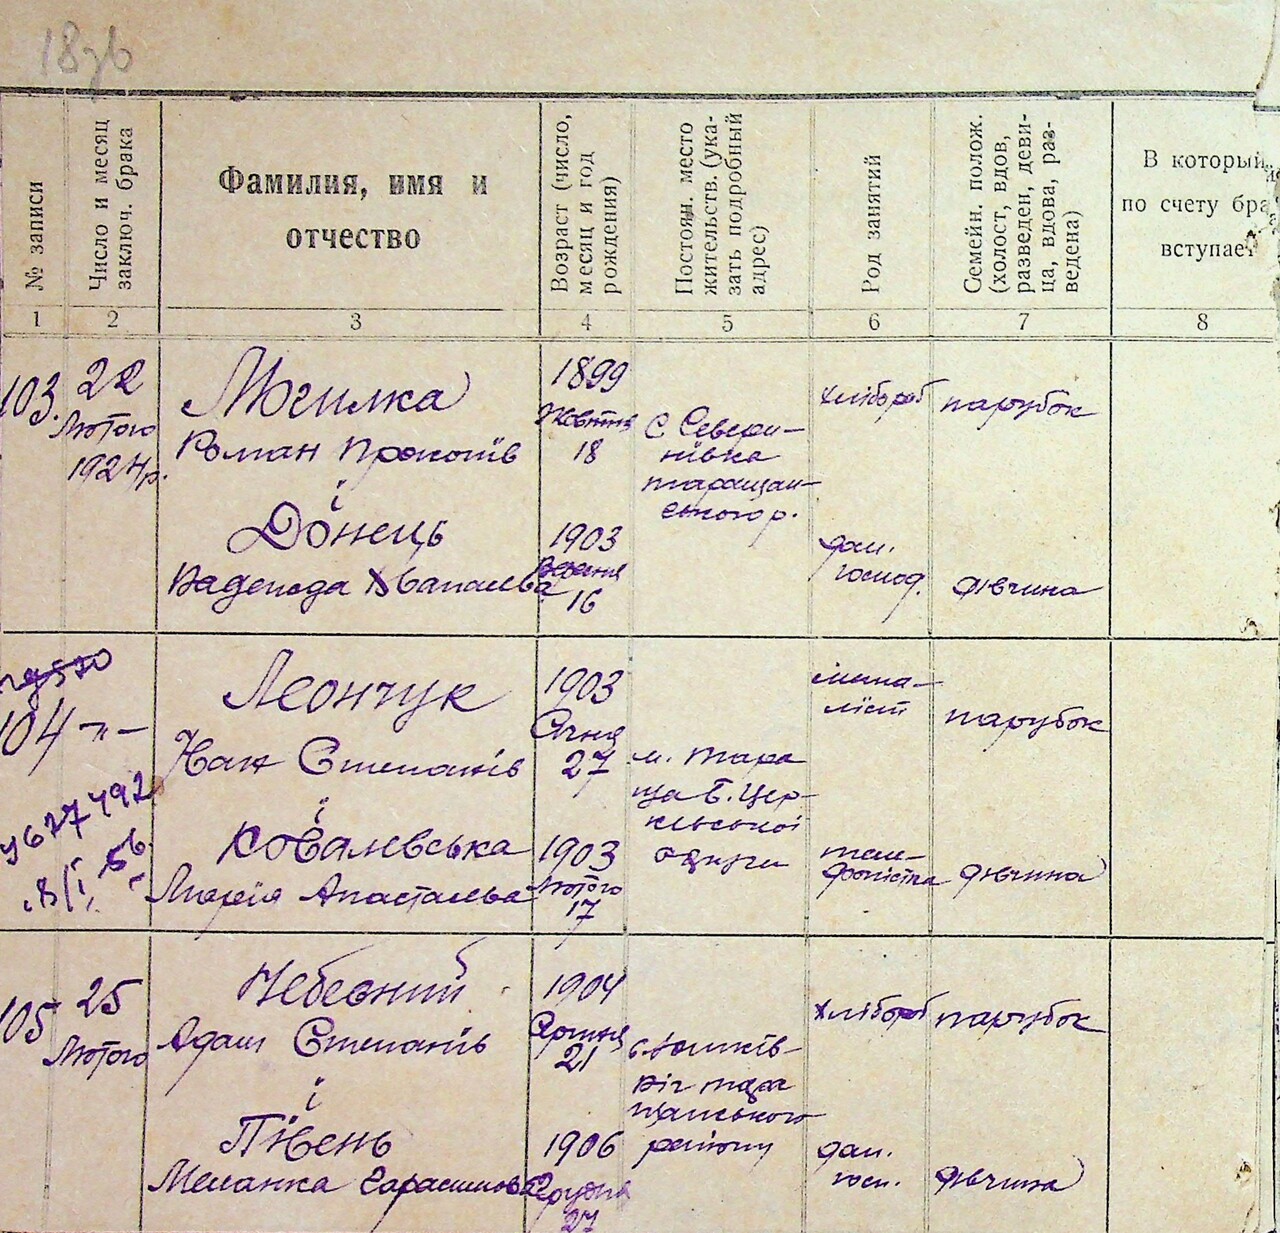 18зв
№ записи
Число и месяц
заключ. брака
Фамилия, имя и
отчество
Возраст (число,
месяц и год
рождения)
Постоян. место
жительств. (ука-
зать подробный
адрес)
Род занятий
Семейн. полож.
(холост, вдов,
разведен, деви-
ца, вдова, раз-
ведена)
В который
по счету бра
вступает
1 2 3 4 5 6 7 8
103.
22
Лютого
1924 р.
Могилка
Роман Прокопів
і
Донець
Надежда
1899
Жовтня
18
1903
16
с Севери-
нівка
таращан-
ського р.
хлібороб
дом.
господ.
парубок
дівчина
104 -"-
Леончук
Іван Степанів
і
Ковалевська
Марія Анастасьева
1903
Січня
27
1903
Лютого
17
м. Тара
ща Б. Цер-
ківської
округи
теле-
фоністка
парубок
дівчина
105
25
Лютого
Небесний
Адам Степанів
і
Півень
Меланка Гарасимова
1904
Серпня
21
1906
Грудня
27
с. Юшків-
ріг тара
щанського
району
хлібороб
дом.
госп.
парубок
дівчина